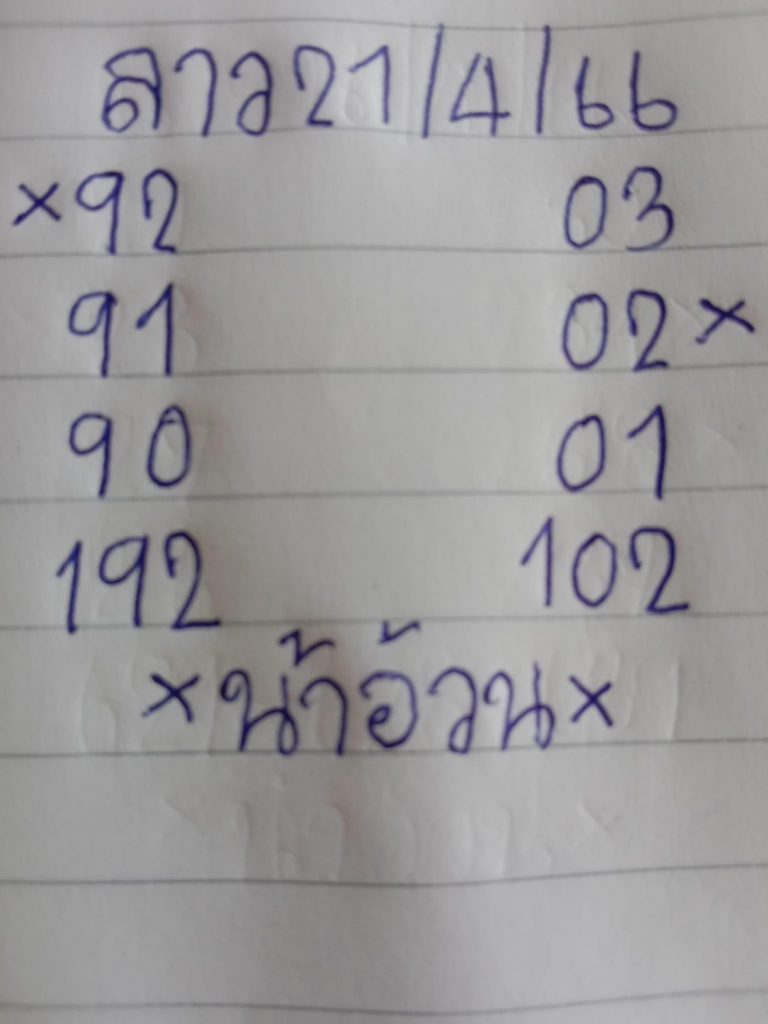 ลาว21/4/66
×92 03
91 02×
90 01
192 102
×น้าอ้วน×